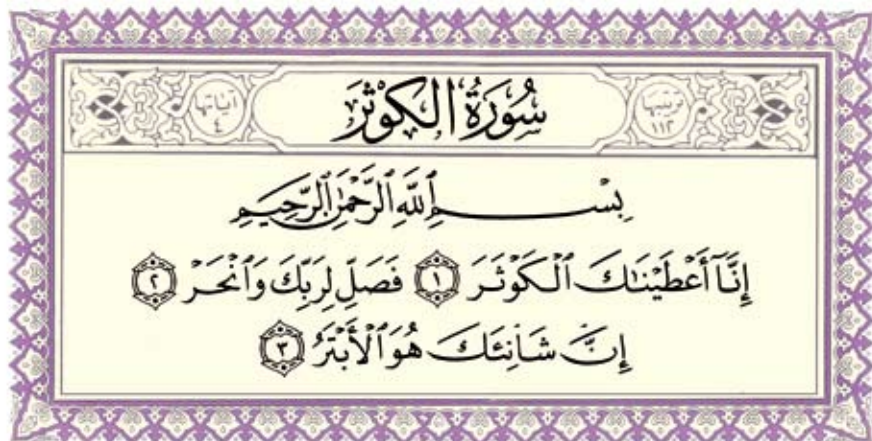 ترتيبها
١١٣
سُورَةُ الكَوْثَرَ
آياتها
٤
بِسْمِ ٱللَّهِ ٱلرَّحْمَٰنِ ٱلرَّحِيمِ
إِنَّآ أَعْطَيْنَٰكَ ٱلْكَوْثَرَ ١ فَصَلِّ لِرَبِّكَ وَٱنْحَرْ ٢
إِنَّ شَانِئَكَ هُوَ ٱلْأَبْتَرُ ٣